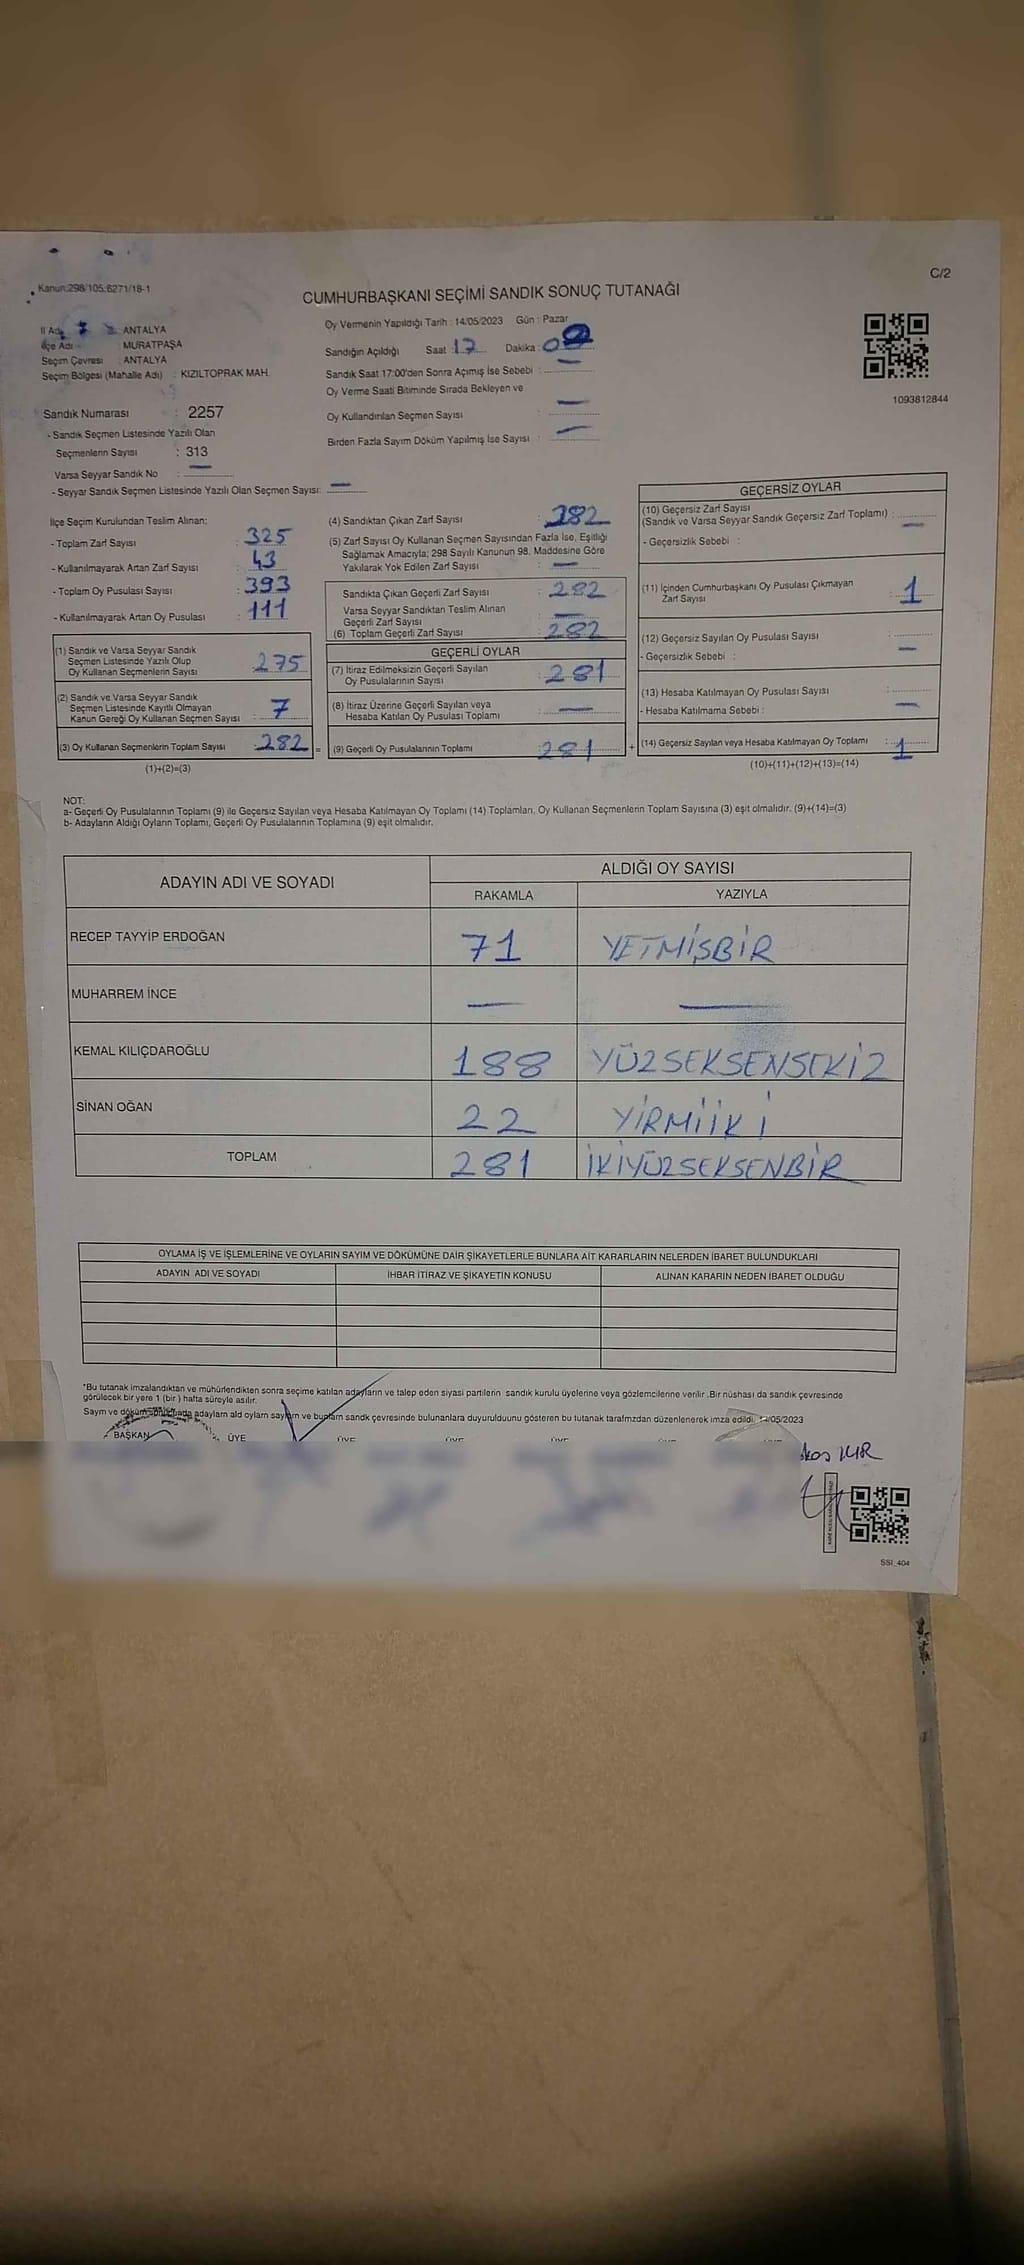 C/2
Kanun:298/105;6271/18-1
CUMHURBAŞKANI SEÇİMİ SANDIK SONUÇ TUTANAĞI
İl Adı : ANTALYA
İlçe Adı : MURATPAŞA
Seçim Çevresi : ANTALYA
Seçim Bölgesi (Mahalle Adı) : KIZILTOPRAK MAH.
Sandık Numarası : 2257
- Sandık Seçmen Listesinde Yazılı Olan
Seçmenlerin Sayısı : 313
Varsa Seyyar Sandık No : —
- Seyyar Sandık Seçmen Listesinde Yazılı Olan Seçmen Sayısı: —
Oy Vermenin Yapıldığı Tarih : 14/05/2023 Gün : Pazar
Sandığın Açıldığı Saat : 17 Dakika : 00
Sandık Saat 17:00'den Sonra Açımış İse Sebebi : —
Oy Verme Saati Bitiminde Sırada Bekleyen ve
Oy Kullandırılan Seçmen Sayısı : —
Birden Fazla Sayım Döküm Yapılmış İse Sayısı : —
1093812844
İlçe Seçim Kurulundan Teslim Alınan;
- Toplam Zarf Sayısı : 325
- Kullanılmayarak Artan Zarf Sayısı : 43
- Toplam Oy Pusulası Sayısı : 393
- Kullanılmayarak Artan Oy Pusulası : 111
(1) Sandık ve Varsa Seyyar Sandık
Seçmen Listesinde Yazılı Olup
Oy Kullanan Seçmenlerin Sayısı : 275
(2) Sandık ve Varsa Seyyar Sandık
Seçmen Listesinde Kayıtlı Olmayan
Kanun Gereği Oy Kullanan Seçmen Sayısı : 7
(3) Oy Kullanan Seçmenlerin Toplam Sayısı : 282 =
(1)+(2)=(3)
(4) Sandıktan Çıkan Zarf Sayısı : 282
(5) Zarf Sayısı Oy Kullanan Seçmen Sayısından Fazla İse, Eşitliği
Sağlamak Amacıyla; 298 Sayılı Kanunun 98. Maddesine Göre
Yakılarak Yok Edilen Zarf Sayısı : —
Sandıkta Çıkan Geçerli Zarf Sayısı : 282
Varsa Seyyar Sandıktan Teslim Alınan
Geçerli Zarf Sayısı : —
(6) Toplam Geçerli Zarf Sayısı : 282
GEÇERLİ OYLAR
(7) İtiraz Edilmeksizin Geçerli Sayılan
Oy Pusulalarının Sayısı : 281
(8) İtiraz Üzerine Geçerli Sayılan veya
Hesaba Katılan Oy Pusulası Toplamı : —
(9) Geçerli Oy Pusulalarının Toplamı : 281 +
GEÇERSİZ OYLAR
(10) Geçersiz Zarf Sayısı
(Sandık ve Varsa Seyyar Sandık Geçersiz Zarf Toplamı) : —
- Geçersizlik Sebebi :
(11) İçinden Cumhurbaşkanı Oy Pusulası Çıkmayan
Zarf Sayısı : 1
(12) Geçersiz Sayılan Oy Pusulası Sayısı : —
- Geçersizlik Sebebi :
(13) Hesaba Katılmayan Oy Pusulası Sayısı : —
- Hesaba Katılmama Sebebi :
(14) Geçersiz Sayılan veya Hesaba Katılmayan Oy Toplamı : 1
(10)+(11)+(12)+(13)=(14)
NOT:
a- Geçerli Oy Pusulalarının Toplamı (9) ile Geçersiz Sayılan veya Hesaba Katılmayan Oy Toplamı (14) Toplamları, Oy Kullanan Seçmenlerin Toplam Sayısına (3) eşit olmalıdır. (9)+(14)=(3)
b- Adayların Aldığı Oyların Toplamı, Geçerli Oy Pusulalarının Toplamına (9) eşit olmalıdır.
ADAYIN ADI VE SOYADI ALDIĞI OY SAYISI
RAKAMLA YAZIYLA
RECEP TAYYİP ERDOĞAN 71 YETMİŞBİR
MUHARREM İNCE — —
KEMAL KILIÇDAROĞLU 188 YÜZSEKSENSEKİZ
SİNAN OĞAN 22 YİRMİİKİ
TOPLAM 281 İKİYÜZSEKSENBİR
OYLAMA İŞ VE İŞLEMLERİNE VE OYLARIN SAYIM VE DÖKÜMÜNE DAİR ŞİKAYETLERLE BUNLARA AİT KARARLARIN NELERDEN İBARET BULUNDUKLARI
ADAYIN ADI VE SOYADI İHBAR İTİRAZ VE ŞİKAYETİN KONUSU ALINAN KARARIN NEDEN İBARET OLDUĞU
*Bu tutanak imzalandıktan ve mühürlendikten sonra seçime katılan adayların ve talep eden siyasi partilerin sandık kurulu üyelerine veya gözlemcilerine verilir .Bir nüshası da sandık çevresinde
görülecek bir yere 1 (bir ) hafta süreyle asılır.
Sayım ve döküm adayların ald oyların sayım ve bunların sandk çevresinde bulunanlara duyurulduunu gösteren bu tutanak tarafmzdan düzenlenerek imza edildi. /05/2023
BAŞKAN ÜYE ÜYE ÜYE ÜYE ÜYE
SSI_404